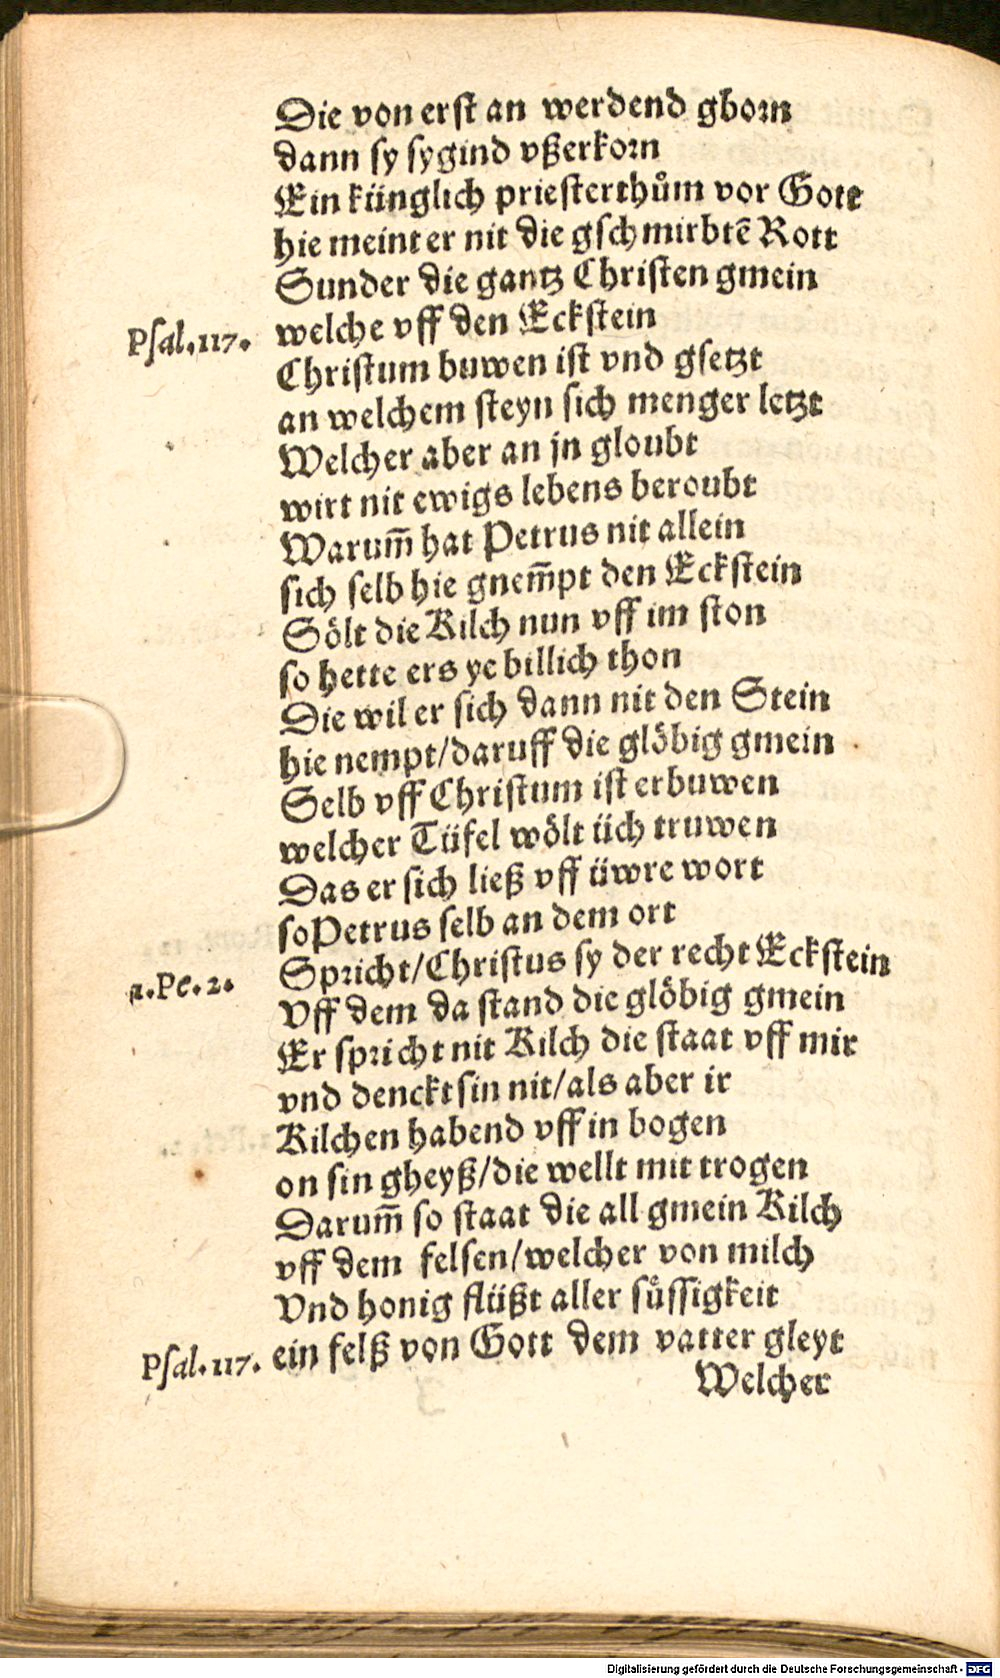 Die von erst an werdend gborn
dann sy sygind vßerkorn
Ein künglich priesterthům vor Gott
hie meint er nit die gschmirbtē Rott
Sunder die gantz Christen gmein
Psal.117. welche vff den Eckstein
Christum buwen ist vnd gsetzt
an welchem steyn sich menger letzt
Welcher aber an jn gloubt
wirt nit ewigs lebens beroubt
Warum̄ hat Petrus nit allein
sich selb hie gnem̄pt den Eckstein
Sölt die Kilch nun vff im ston
so hette ers ye billich thon
Die wil er sich dann nit den Stein
hie nempt/daruff die glöbig gmein
Selb vff Christum ist erbuwen
welcher Tüfel wölt üch truwen
Das er sich ließ vff üwre wort
so Petrus selb an dem ort
1.Pe.2. Spricht/Christus sy der recht Eckstein
Vff dem da stand die glöbig gmein
Er spricht nit Kilch die staat vff mir
vnd denckt sin nit/als aber ir
Kilchen habend vff in bogen
on sin gheyß/die wellt mit trogen
Darum̄ so staat die all gmein Kilch
vff dem felsen/welcher von milch
Vnd honig flüßt aller sůssigkeit
Psal.117. ein felß von Gott dem vatter gleyt
Welcher
Digitalisierung gefördert durch die Deutsche Forschungsgemeinschaft - DFG